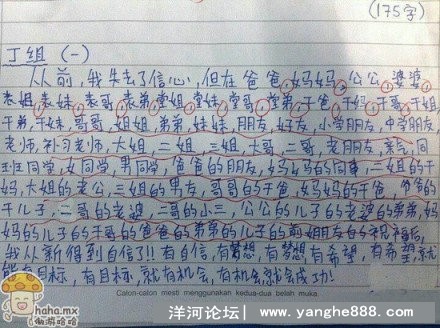 (175字)
丁组 (一)
从前，我失去了信心，但在爸爸，妈妈，公公，婆婆，
表姐，表妹，表哥，表弟，堂姐，堂妹，堂哥，堂弟，干爸，干妈，干哥，干姐
干弟，干妹，哥哥，姐姐，弟弟，妹妹，朋友，好友，小学朋友，中学朋友
老师，补习老师，大姐，二姐，三姐，大哥，二哥，老朋友，亲戚，同
班同学，女同学，男同学，爸爸的朋友，妈妈的同事，二姐的干
妈，大姐的老公，三姐的男友，哥哥的干爸，妈妈的干爸，爸爸的
干儿子，二哥的老婆，二哥的小三，公公的儿子的老婆的弟弟，妈
妈的儿子的干爸爸的弟弟的儿子的前姐朋友的祝福后，
我从新得到自信了!!有自信，有梦想，有梦想，有希望，有希望，就
有目标，有目标，就有机会，有机会，就会成功!
Calon-calon mesti menggunakan kedua-dua belah muka
haha.mx
傲游哈哈
洋河论坛| www.yanghe888.com